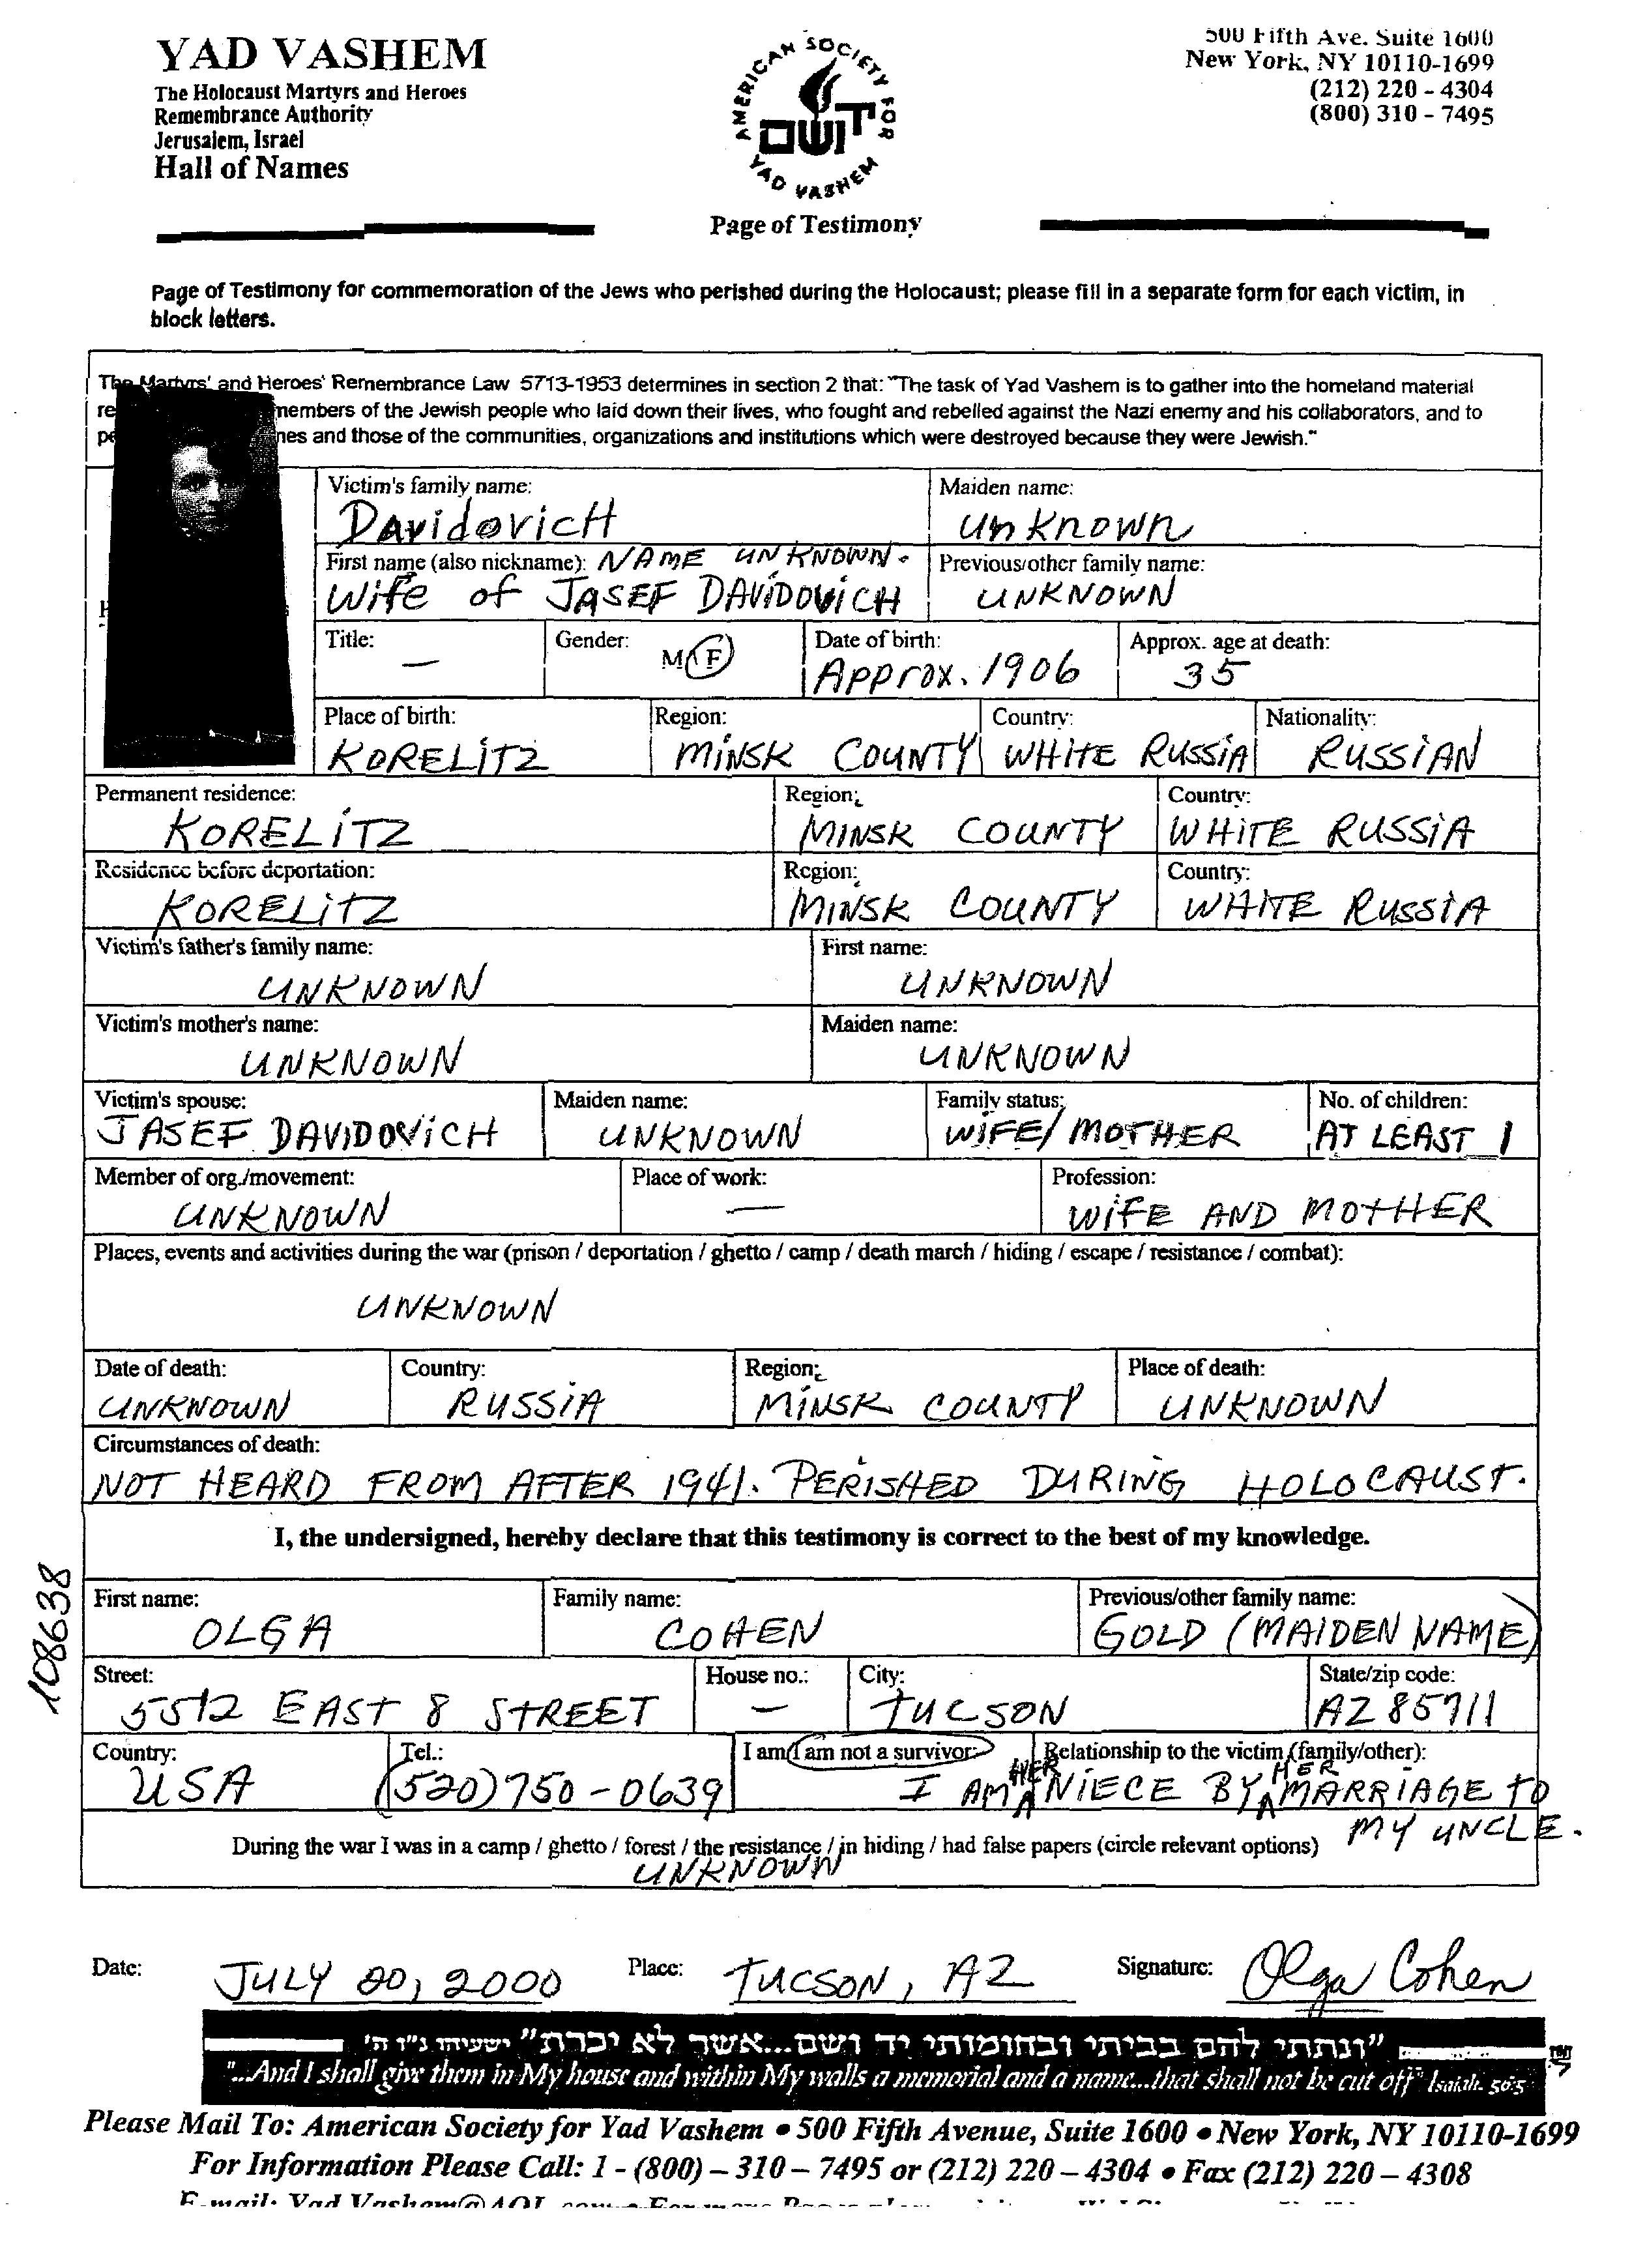 YAD VASHEM
The Holocaust Martyrs and Heroes
Remembrance Authority
Jerusalem, Israel
Hall of Names
AMERICAN SOCIETY FOR
יד ושם
YAD VASHEM
500 Fifth Ave. Suite 1600
New York, NY 10110-1699
(212) 220 - 4304
(800) 310 - 7495
Page of Testimony
Page of Testimony for commemoration of the Jews who perished during the Holocaust; please fill in a separate form for each victim, in
block letters.
The Martyrs' and Heroes' Remembrance Law 5713-1953 determines in section 2 that: "The task of Yad Vashem is to gather into the homeland material
re members of the Jewish people who laid down their lives, who fought and rebelled against the Nazi enemy and his collaborators, and to
pe nes and those of the communities, organizations and institutions which were destroyed because they were Jewish."
Victim's family name: Maiden name:
DavidovicH unknown
First name (also nickname): NAME UNKNOWN. Previous/other family name:
Wife of JASEF DAVIDOVICH UNKNOWN
Title: Gender: M F Date of birth: Approx. age at death:
— Approx. 1906 35
Place of birth: Region: Country: Nationality:
KORELITZ MINSK COUNTY WHITE RUSSIA RUSSIAN
Permanent residence: Region: Country:
KORELITZ MINSK COUNTY WHITE RUSSIA
Residence before deportation: Region: Country:
KORELITZ MINSK COUNTY WHITE RUSSIA
Victim's father's family name: First name:
UNKNOWN UNKNOWN
Victim's mother's name: Maiden name:
UNKNOWN UNKNOWN
Victim's spouse: Maiden name: Family status: No. of children:
JASEF DAVIDOVICH UNKNOWN WIFE/MOTHER AT LEAST 1
Member of org./movement: Place of work: Profession:
UNKNOWN — WIFE AND MOTHER
Places, events and activities during the war (prison / deportation / ghetto / camp / death march / hiding / escape / resistance / combat):
UNKNOWN
Date of death: Country: Region: Place of death:
UNKNOWN RUSSIA MINSK COUNTY UNKNOWN
Circumstances of death:
NOT HEARD FROM AFTER 1941. PERISHED DURING HOLOCAUST.
I, the undersigned, hereby declare that this testimony is correct to the best of my knowledge.
108638
First name: Family name: Previous/other family name:
OLGA COHEN GOLD (MAIDEN NAME)
Street: House no.: City: State/zip code:
5512 EAST 8 STREET — TUCSON AZ 85711
Country: Tel.: I am/I am not a survivor: Relationship to the victim (family/other):
USA (520) 750-0639 I AM HER NIECE BY HER MARRIAGE TO
MY UNCLE.
During the war I was in a camp / ghetto / forest / the resistance / in hiding / had false papers (circle relevant options)
UNKNOWN
Date: JULY 20, 2000 Place: TUCSON, AZ Signature: Olga Cohen
"ונתתי להם בביתי ובחומותי יד ושם...אשר לא יכרת" ישעיהו נ"ו ה'
"...And I shall give them in My house and within My walls a memorial and a name...that shall not be cut off" Isaiah. 56:5
Please Mail To: American Society for Yad Vashem • 500 Fifth Avenue, Suite 1600 • New York, NY 10110-1699
For Information Please Call: 1 - (800) – 310 – 7495 or (212) 220 – 4304 • Fax (212) 220 – 4308